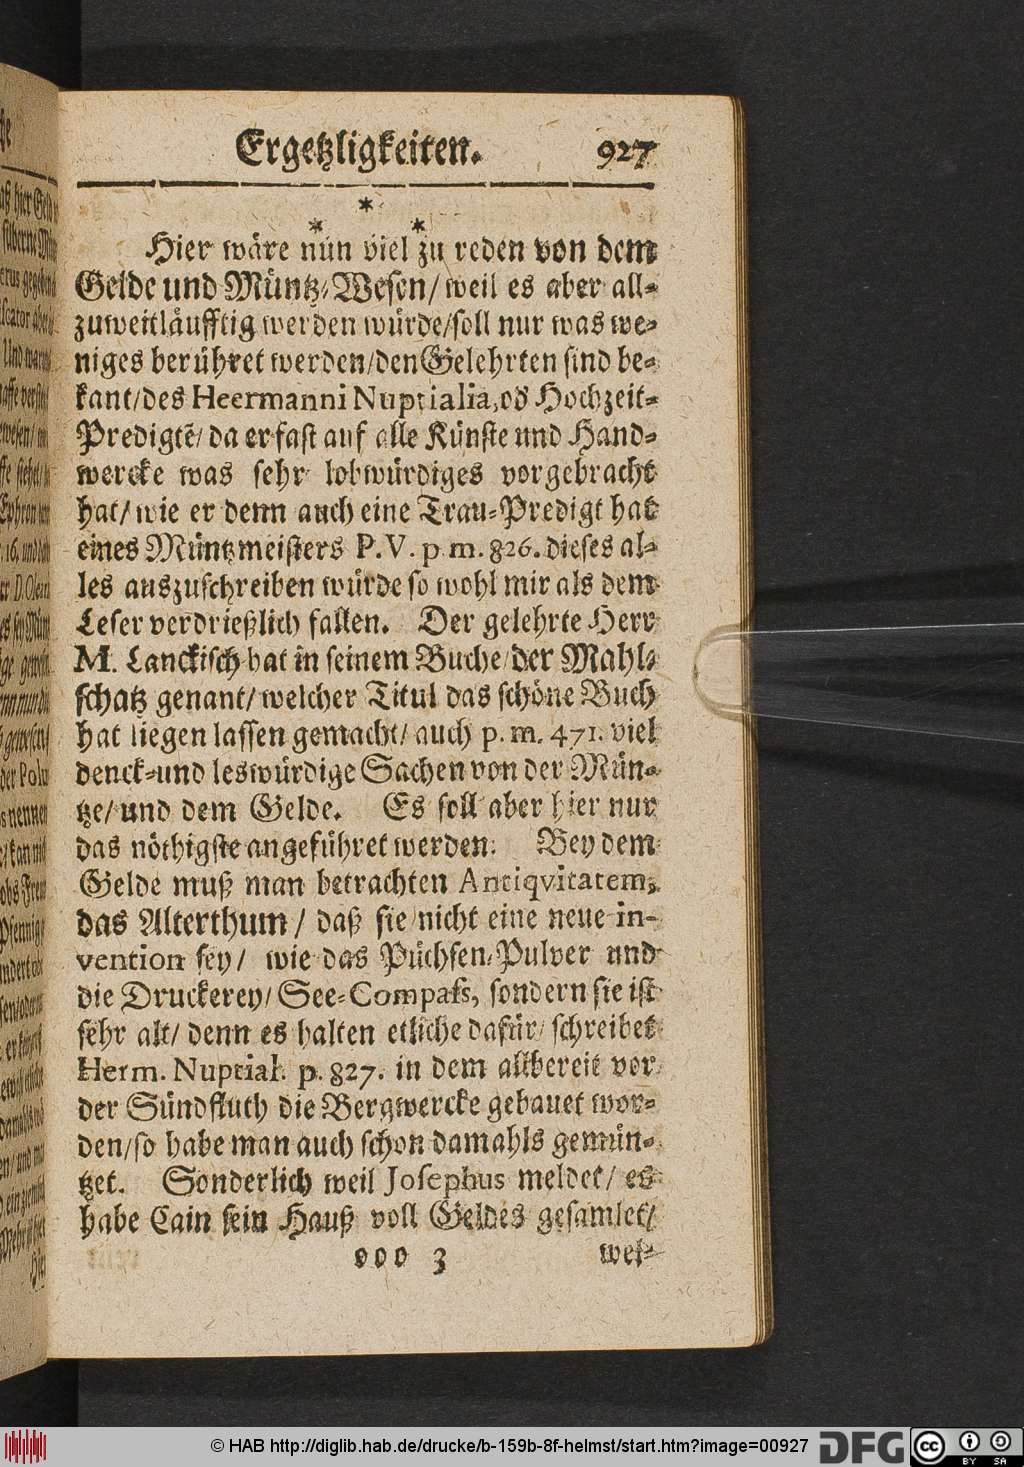 Ergetzligkeiten. 927
*
* *
Hier wäre nun viel zu reden von dem
Gelde und Müntz-Wesen/ weil es aber all-
zuweitläufftig werden würde/ soll nur was we-
niges berühret werden/ den Gelehrten sind be-
kant/ des Heermanni Nuptialia, od Hochzeit-
Predigtē/ da er fast auf alle Künste und Hand-
wercke was sehr lobwürdiges vorgebracht
hat/ wie er denn auch eine Trau-Predigt hat
eines Müntzmeisters P. V. p. m. 826. dieses al-
les auszuschreiben würde so wohl mir als dem
Leser verdrießlich fallen. Der gelehrte Herr
M. Lanckisch hat in seinem Buche/ der Mahl-
schatz genant/ welcher Titul das schöne Buch
hat liegen lassen gemacht/ auch p. m. 471. viel
denck-und leswürdige Sachen von der Mün-
tze/ und dem Gelde. Es soll aber hier nur
das nöthigste angeführet werden. Bey dem
Gelde muß man betrachten Antiqvitatem,
das Alterthum/ daß sie nicht eine neue in-
vention sey/ wie das Püchsen-Pulver und
die Druckerey/ See-Compass, sondern sie ist
sehr alt/ denn es halten etliche dafür/ schreibet
Herm. Nuptial. p. 827. in dem allbereit vor
der Sündfluth die Bergwercke gebauet wor-
den/ so habe man auch schon damahls gemün-
tzet. Sonderlich weil Josephus meldet/ es
habe Cain sein Hauß voll Geldes gesamlet/
ooo 3 wel-
© HAB http://diglib.hab.de/drucke/b-159b-8f-helmst/start.htm?image=00927
DFG
cc BY SA